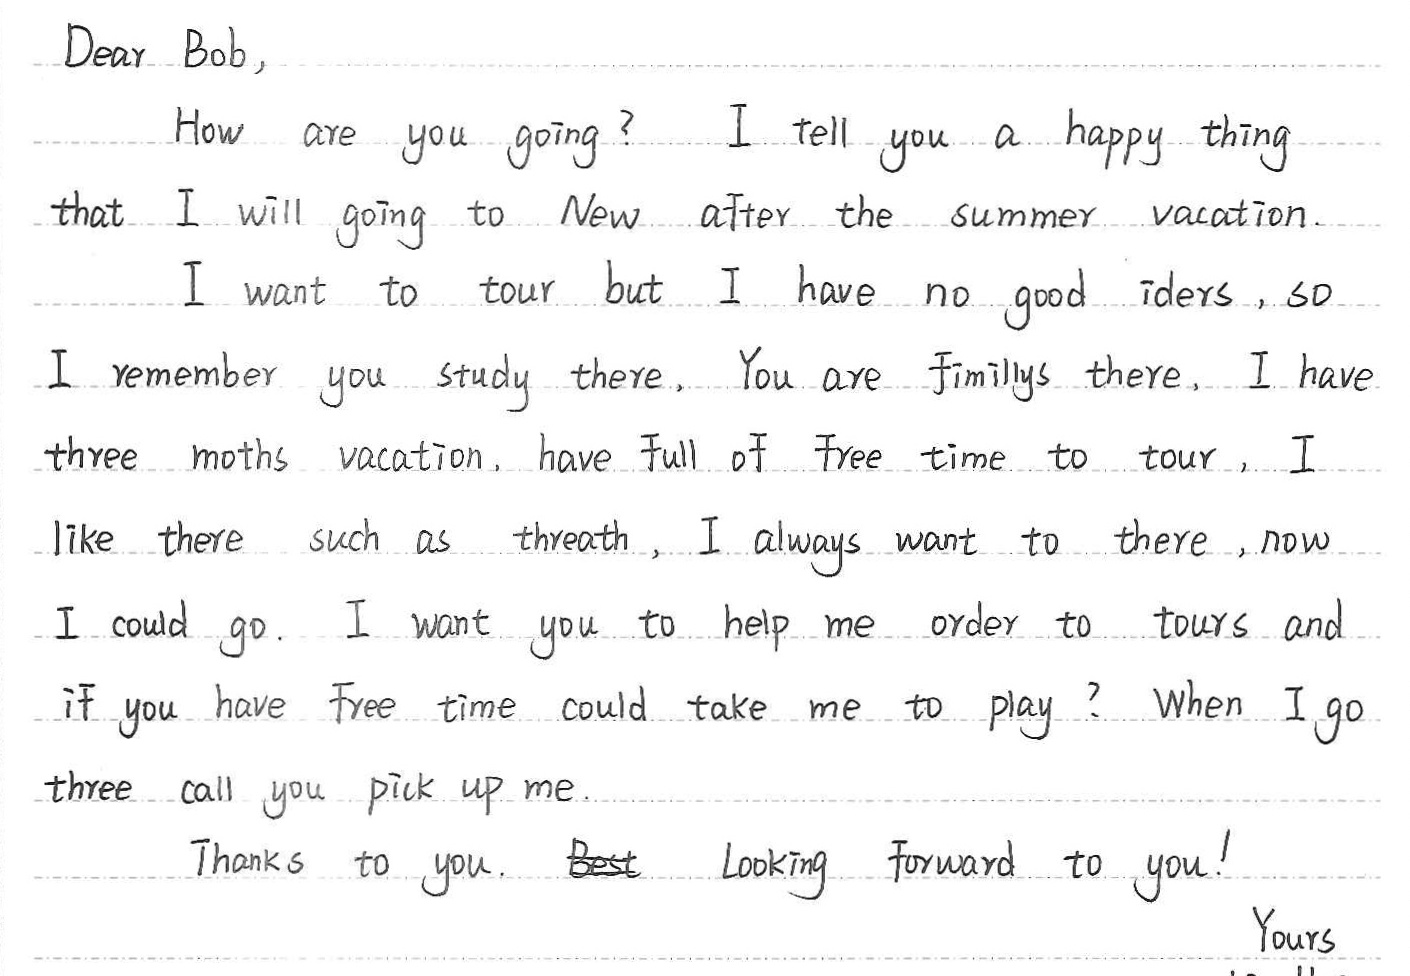 Dear Bob,
How are you going? I tell you a happy thing
that I will going to New after the summer vacation.
I want to tour but I have no good iders, so
I remember you study there. You are fimillys there. I have
three moths vacation. have full of free time to tour, I
like there such as threath, I always want to there, now
I could go. I want you to help me order to tours and
if you have free time could take me to play? When I go
three call you pick up me.
Thanks to you. Best Looking forward to you!
Yours